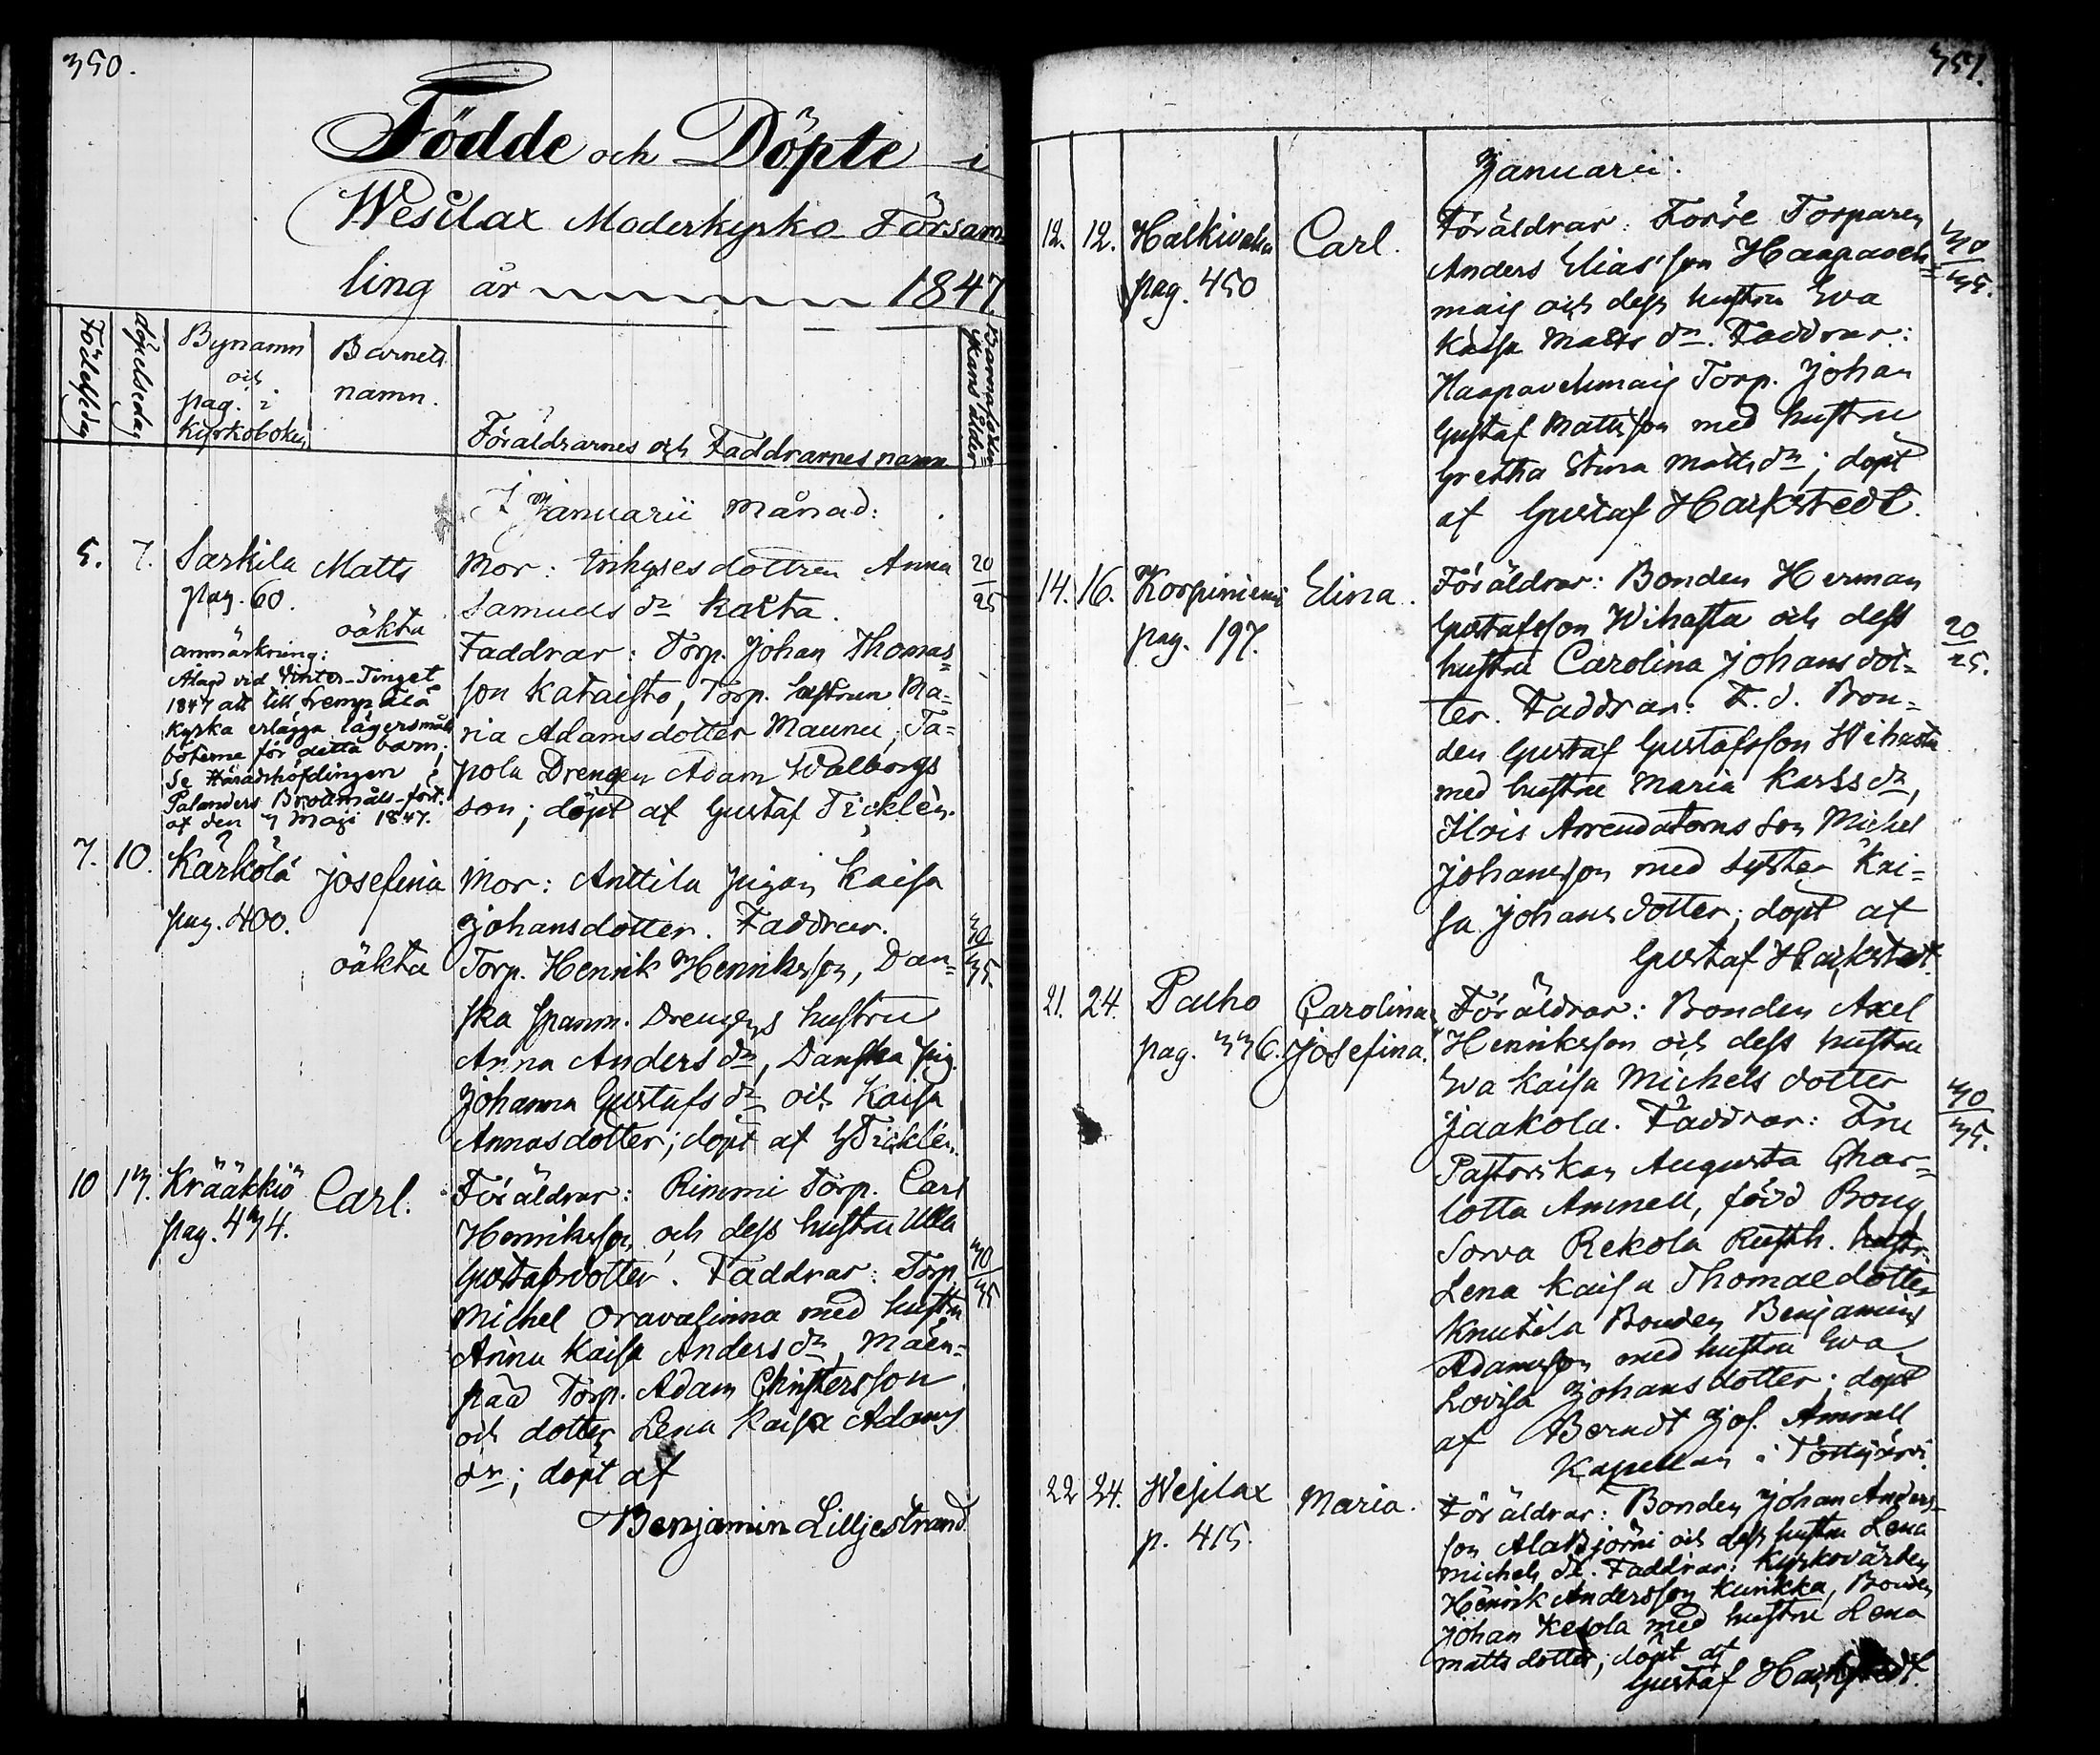 350.
Födde och Döpte i
Wesilax Moderkyrko Församling
ling år 1847.
Födelsedag
döpelsedag
Bynamn
och
pag. i
kyrkoboken
Barnets
namn.
Föräldrarnes och Faddrarnes namn
Barnaföderskans ålder
I Januarii Månad:
5. 7. Sarkila Matts
pag. 60.
oäkta
anmärkning:
Ålagd vid Vinter-Tinget
1847 att till Lempälä
Kyrka erlägga lägersmåls
böterne för detta barn;
Se Häradshöfdingen
Palanders Brottmåls-fört.
af den 7 Maji 1847.
Mor: Inhyses dottren Anna
Samuels dr
Faddrar: Torp. Johan Thomas=
son Kataisto, Torp. hustrun Ma=
ria Adamsdotter Maunu, Ta=
pola Drengen Adam Walborgs
son; döpt af Gustaf Ticklén.
20
25
7. 10. Kärkölä Josefina
pag. 400.
oäkta
Mor: Anttila pigan Kaisa
Johansdotter. Faddrar.
Torp. Henrik Henriksson, Dan=
ska spanm. Drengens hustru
Anna Anders dr, Danska pig.
Johanna Gustafs dr och Kaisa
Annasdotter; döpt af G Ticklén.
30
35.
10 13. Krääkkiö Carl.
pag. 434.
Föräldrar: Rimmi Torp. Carl
Henriksson och dess hustru Ulla
Gustafsdotter. Faddrar: Torp.
Michel Oravalinna med hustru
Anna Kaisa Anders dr, Mäen=
pää Torp. Adam Christersson
och dotter Lena Kaisa Adams
dr; döpt af
Benjamin Lilljestrand
30
35
351.
Januarii:
12. 12. Halkivaha Carl.
pag. 450
Föräldrar: Förre Torparen
Anders Elias'son Haapaveh=
maig och dess hustru Ewa
Kaisa Matts dr. Faddrar:
Haapavehmaig Torp. Johan
Gustaf Mattsson med hustru
Gretha Stina Matts dr; döpt
af Gustaf Harkstedt.
30
35.
14. 16. Korpiniemi Elina.
pag. 197.
Föräldrar: Bonden Herman
Gustafsson Wihasta och dess
hustru Carolina Johansdot=
ter. Faddrar: F. d. Bon=
den Gustaf Gustafsson Wihasta
med hustru Maria Karls dr,
Hois Arrendatorns Son Michel
Johansson med syster Kai=
sa Johans dotter; döpt af
Gustaf Harkstedt.
20
25.
21. 24. Palho Carolina
pag. 336. Josefina.
Föräldrar: Bonden Axel
Henriksson och dess hustru
Ewa Kaisa Michels dotter
Jaakola. Faddrar: Fru
Pastorskan Augusta Char=
lotta Amnell, född Bong,
Sorva Rekola Rusth. hustr.
Lena Kaisa Thomaedotter
Knutila Bonden Benjamin
Adamsson med hustru Ewa
Lovisa Johans dotter; döpt
af Berndt Jos. Amnell
Kapellan i Tottijärvi.
30
35.
22 24. Wesilax Maria.
p. 415.
Föräldrar: Bonden Johan Anders-
son AlaBjörni och dess hustru Lena
Michels dr. Faddrar: Kyrkovärden
Henrik Andersson Kurikka, Bonden
Johan Kesola med hustru Lena
Mattsdotter; döpt af
Gustaf Harkstedt.